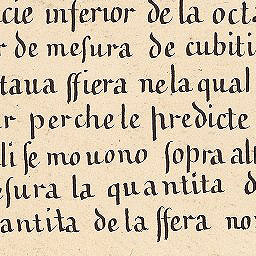 cie inferior de la octa
r de meſura de cubiti
taua ſſiera ne la qual
r perche le predicte
li ſe mouono ſopra alt
eſura la quantita d
antita de la ſſera no